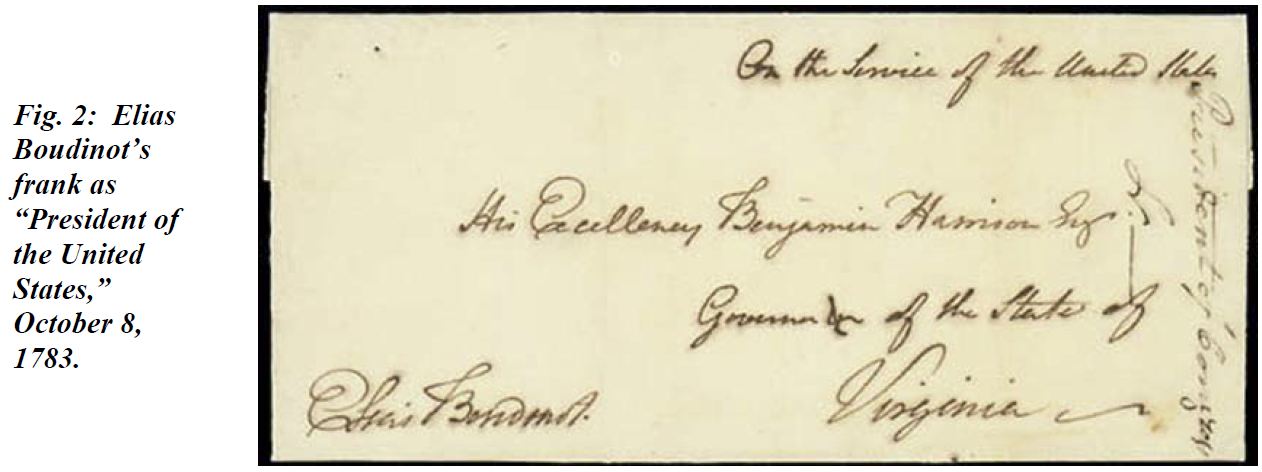 Fig. 2: Elias
Boudinot’s
frank as
“President of
the United
States,”
October 8,
1783.
On the Service of the United States
His Excellency Benjamin Harrison Esqr.
Governor of the State of
Virginia
Elias Boudinot.
President of Congress